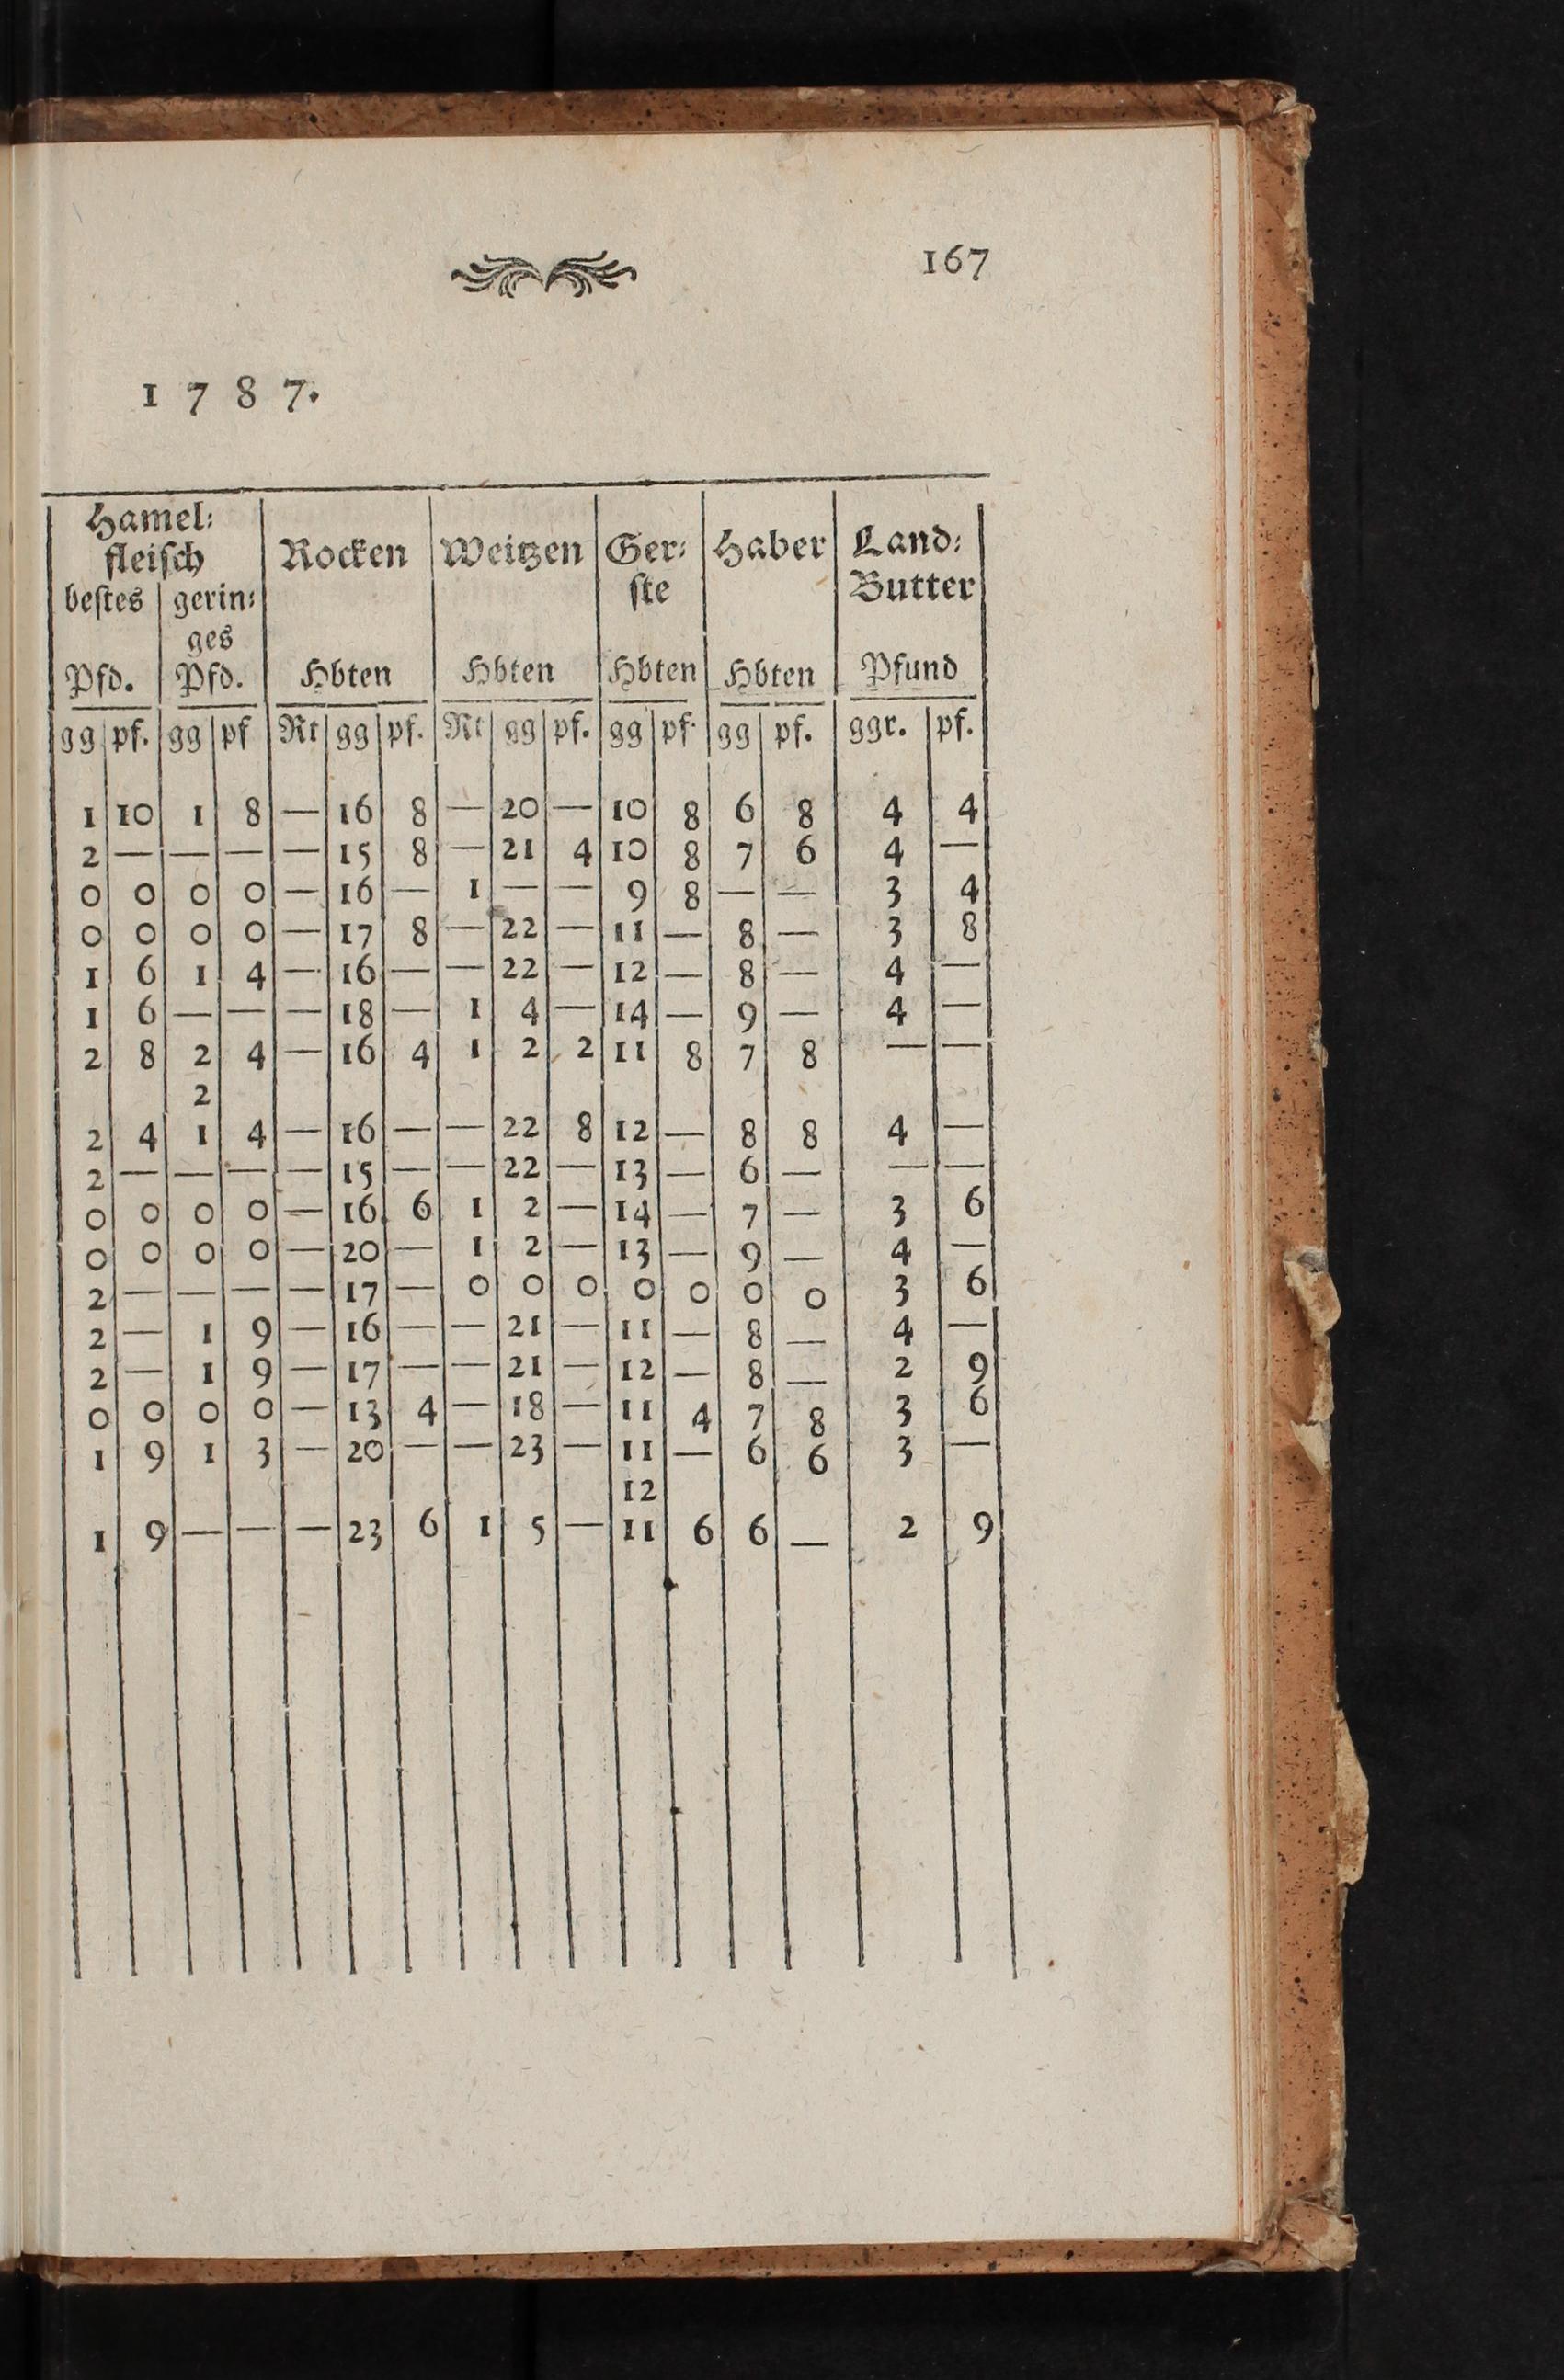 167
1787.
Hamel:
fleiſch
Rocken Weitzen Ger: Haber Land:
beſtes gerin: ſte Butter
ges
Pfd. Pfd. Hbten Hbten Hbten Hbten Pfund
gg pf. gg pf Rt gg pf. Rt gg pf. gg pf. gg pf. ggr. pf.
1 10 1 8 — 16 8 — 20 — 10 8 6 8 4 4
2 — — — — 15 8 — 21 4 10 8 7 6 4 —
0 0 0 0 — 16 — 1 — — 9 8 — — 3 4
0 0 0 0 — 17 8 — 22 — 11 — 8 — 3 8
1 6 1 4 — 16 — — 22 — 12 — 8 — 4 —
1 6 — — — 18 — 1 4 — 14 — 9 — 4 —
2 8 2 4 — 16 4 1 2 2 11 8 7 8 — —
2
2 4 1 4 — 16 — — 22 8 12 — 8 8 4 —
2 — — — — 15 — — 22 — 13 — 6 — — —
0 0 0 0 — 16 6 1 2 — 14 — 7 — 3 6
0 0 0 0 — 20 — 1 2 — 13 — 9 — 4 —
2 — — — — 17 — 0 0 0 0 0 0 0 3 6
2 — 1 9 — 16 — — 21 — 11 — 8 — 4 —
2 — 1 9 — 17 — — 21 — 12 — 8 — 2 9
0 0 0 0 — 13 4 — 18 — 11 4 7 8 3 6
1 9 1 3 — 20 — — 23 — 11 — 6 6 3 —
12
1 9 — — — 23 6 1 5 — 11 6 6 — 2 9